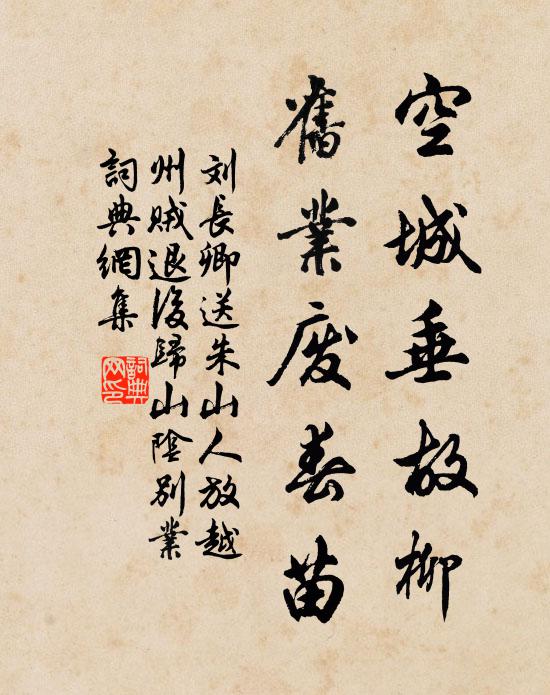 空城垂故柳
舊業廢春苗
刘長卿送朱山人放越
州賊退後歸山陰別業
詞典網集
詞典
网印